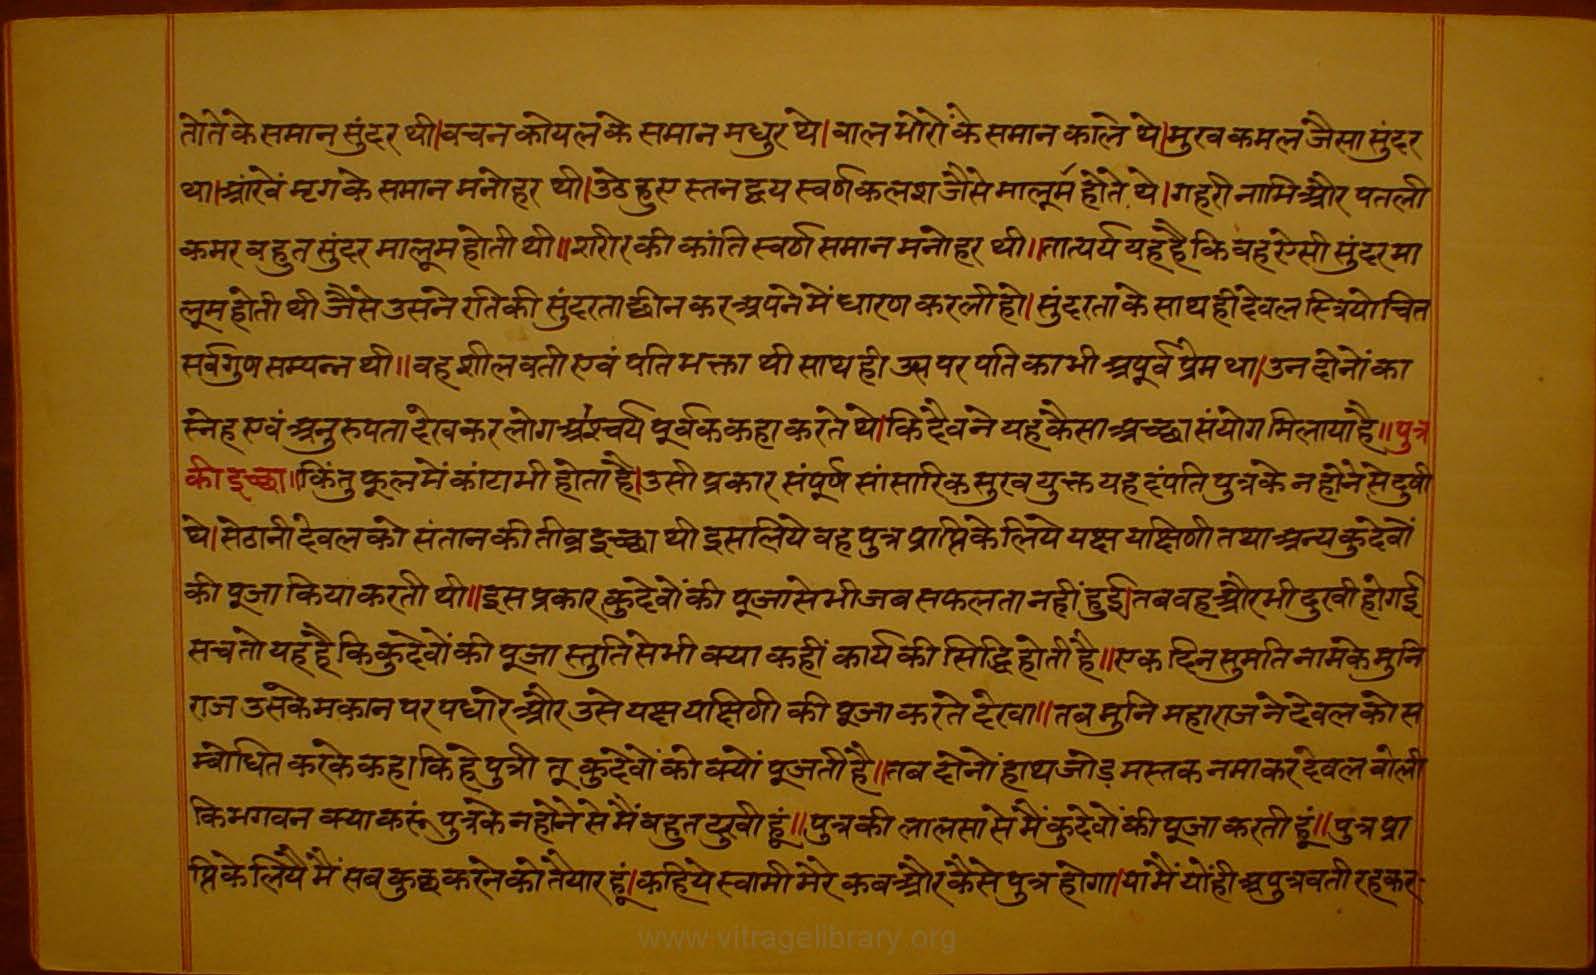 तोते के समान सुंदर थी। वचन कोयल के समान मधुर थे। बाल भोरों के समान काले थे। मुख कमल जैसा सुंदर
था। आंखें मृग के समान मनोहर थी। उठे हुए स्तन द्वय स्वर्ण कलश जैसे मालूम होते थे। गहरी नाभि और पतली
कमर बहुत सुंदर मालूम होती थी॥ शरीर की कांति स्वर्ण समान मनोहर थी॥ तात्पर्य यह है कि वह ऐसी सुंदर मा
लूम होती थी जैसे उसने रति की सुंदरता छीन कर अपने में धारण करली हो। सुंदरता के साथ ही देवल स्त्रियोचित
सर्वगुण सम्पन्न थी॥ वह शीलवती एवं पति भक्ता थी साथ ही उस पर पति का भी अपूर्व प्रेम था। उन दोनों का
स्नेह एवं अनुरुपता देखकर लोग आश्चर्य पूर्वक कहा करते थे। कि दैव ने यह कैसा अच्छा संयोग मिलाया है॥ पुत्र
की इच्छा॥ किंतु फूल में कांटा भी होता है। उसी प्रकार संपूर्ण सांसारिक सुख युक्त यह दंपति पुत्र के न होने से दुषी
थे। सेठानी देवल को संतान की तीव्र इच्छा थी इसलिये वह पुत्र प्राप्ति के लिये यक्ष यक्षिणी तथा अन्य कुदेवों
की पूजा किया करती थी॥ इस प्रकार कुदेवों की पूजा से भी जब सफलता नहीं हुई। तब वह और भी दुखी हो गई
सच तो यह है कि कुदेवों की पूजा स्तुति से भी क्या कहीं कार्य की सिद्धि होती है॥ एक दिन सुमति नाम के मुनि
राज उसके मकान पर पधारे और उसे यक्ष यक्षिणी की पूजा करते देखा॥ तब मुनि महाराज ने देवल को स
म्बोधित करके कहा। कि हे पुत्री तू कुदेवों को क्यों पूजती है॥ तब दोनों हाथ जोड़ मस्तक नमाकर देवल बोली
कि भगवन क्या करूं पुत्र के न होने से मैं बहुत दुखी हूं॥ पुत्र की लालसा से मैं कुदेवों की पूजा करती हूं॥ पुत्र प्रा
प्ति के लिये मैं सब कुछ करने को तैयार हूं। कहिये स्वामी मेरे कब और कैसे पुत्र होगा। या मैं यों ही अपुत्रवती रहकर
www.vitragelibrary.org